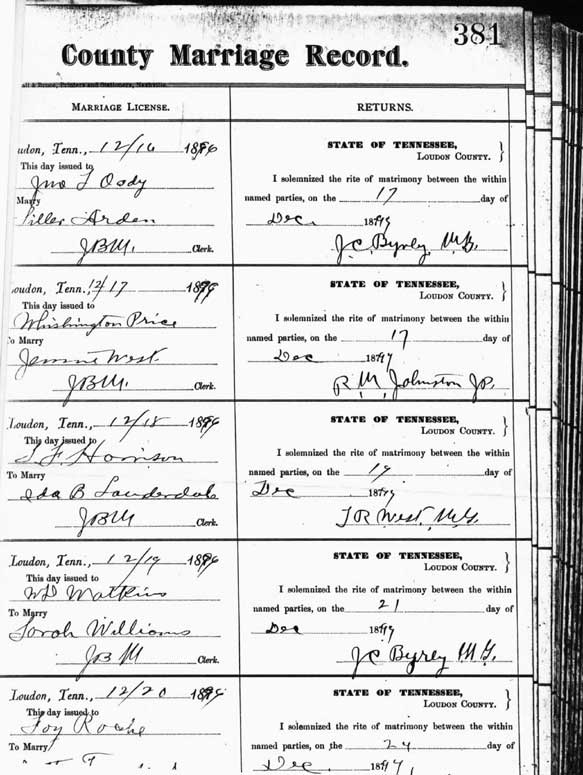 381
County Marriage Record.
Marriage License.
RETURNS.
oudon, Tenn., 12/16 1899
This day issued to
Jno L Oody
Marry
Siller Arden
JBM. Clerk.
STATE OF TENNESSEE,
Loudon County.
I solemnized the rite of matrimony between the within
named parties, on the 17 day of
Dec. 1899
J.C. Byrley M.G.
oudon, Tenn. 12/17 1899
This day issued to
Whishington Price
To Marry
Jennie West.
JBM. Clerk.
STATE OF TENNESSEE,
Loudon County.
I solemnized the rite of matrimony between the within
named parties, on the 17 day of
Dec 1899
R. M. Johnston J.P.
Loudon, Tenn., 12/18 1899
This day issued to
Harrison
To Marry
Ida B Lauderdale
JBM Clerk.
STATE OF TENNESSEE,
Loudon County.
I solemnized the rite of matrimony between the within
named parties, on the 19 day of
Dec 1899
J R West, M.G.
Loudon, Tenn., 12/19 1899
This day issued to
Watkins
To Marry
Sarah Williams
JBM Clerk.
STATE OF TENNESSEE,
Loudon County.
I solemnized the rite of matrimony between the within
named parties, on the 21 day of
Dec 1899
JC Byrley M.G.
Loudon, Tenn., 12/20 1899
This day issued to
Foy
To Marry
STATE OF TENNESSEE,
Loudon County.
I solemnized the rite of matrimony between the within
named parties, on the 24 day of
Dec. 1899